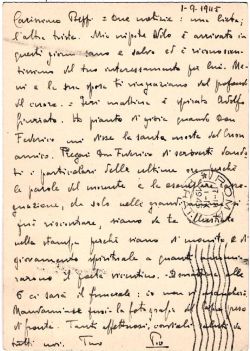 1-9-1945
Carissimo Beppe = Due notizie: una lieta,
l'altra triste. Mio nipote Nilo è arrivato in
questi giorni sano e salvo ed è riconoscen-
tissimo del tuo interessamento per lui. Me-
ni e la sua sposa ti ringraziano dal profondo
del cuore. = Ieri mattina è spirato Adolfo
Giuriato. Ho pianto di gioia quando Don
Federico mi disse la santa morte del caro
amico. Pregai Don Federico di scriverti
i particolari delle ultime ore perchè
le parole del morente e la
gnazione, che solo nelle grandi
può riscontrare, siano da te illustrate
nella stampa perchè siano di monito e di
giovamento spirituale a quanti
il poeta vicentino. Domattina alle
6 ci sarà il funerale: io non
Mandamine puoi la fotografia del
di fronte. Tanti affettuosi, cordiali saluti da
tutti noi. Tuo